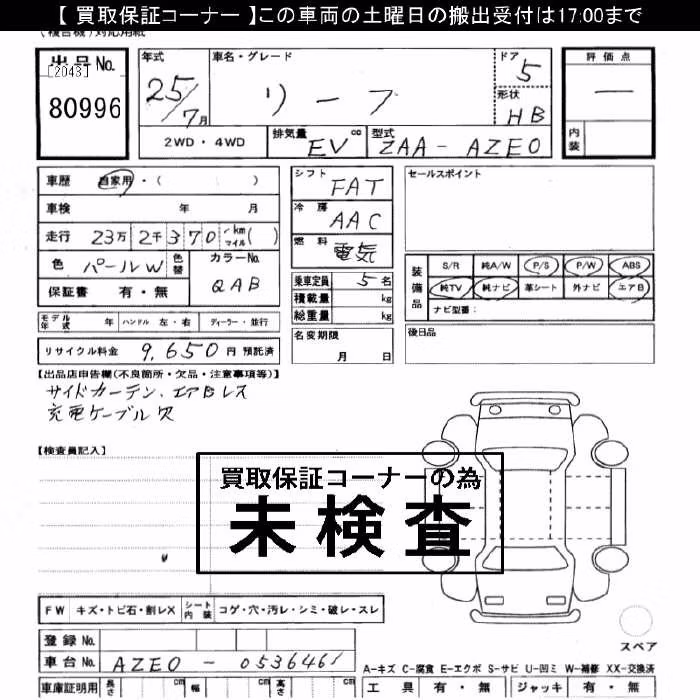 【 買取保証コーナー 】この車両の土曜日の搬出受付は17:00まで
出品No.
[2043]
80996
年式
25/7月
車名・グレード
リーフ
ドア
5
形状
HB
評価点
—
内装
2WD・4WD
排気量
EV
cc
型式
ZAA-AZE0
車歴 自家用・( )
車検 年 月
走行 23万 2千 3 7 0 km マイル( )
色 パールW 色替
カラーNo.
QAB
保証書 有・無
シフト
FAT
冷房
AAC
燃料
電気
乗車定員 5 名
積載量 kg
総重量 kg
セールスポイント
装備品
S/R 純A/W P/S P/W ABS
純TV 純ナビ 革シート 外ナビ エアB
ナビ型番:
モデル年式 年 ハンドル 左・右 ディーラー・並行
名変期限
月 日
後日品
リサイクル料金 9,650 円 預託済
【出品店申告欄(不良箇所・欠品・注意事項等)】
サイドカーテン、エアBレス
充電ケーブル欠
【検査員記入】
買取保証コーナーの為
未検査
FW キズ・トビ石・割レX シート内装 コゲ・穴・汚レ・シミ・破レ・スレ
登録No.
車台No. AZE0-0536461
スペア
A-キズ C-腐食 E-エクボ S-サビ U-凹ミ W-補修 XX-交換済
車庫証明用 長さ cm 幅 cm 高さ cm
工具 有・無 ジャッキ 有・無